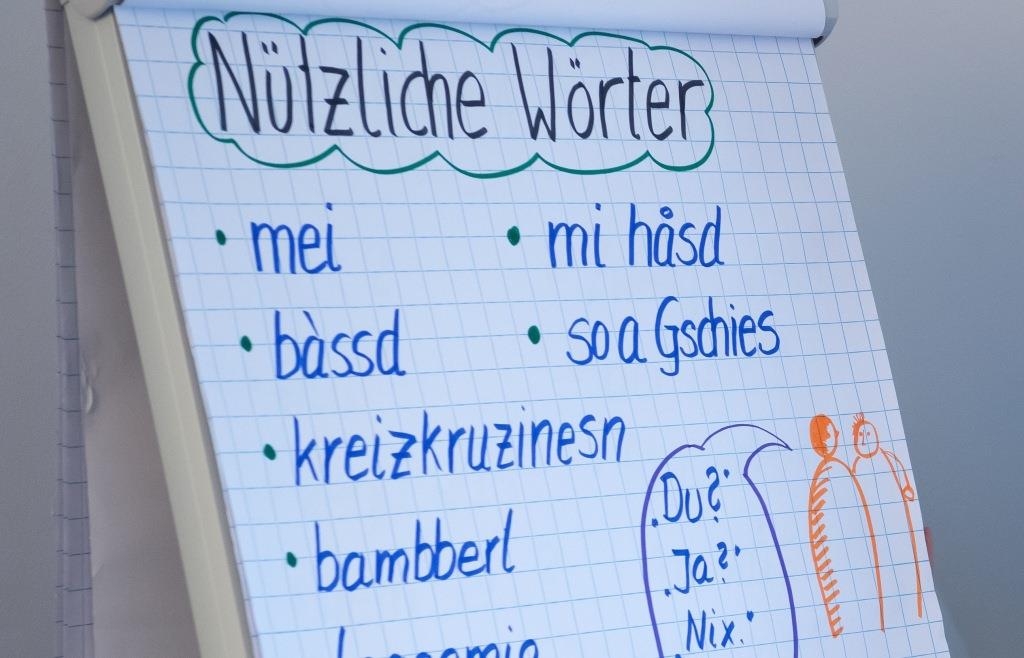 Nützliche Wörter
• mei
• bàssd
• kreizkruzinesn
• bambberl
• mi håsd
• so a Gschies
„Du?“
„Ja?“
„Nix.“